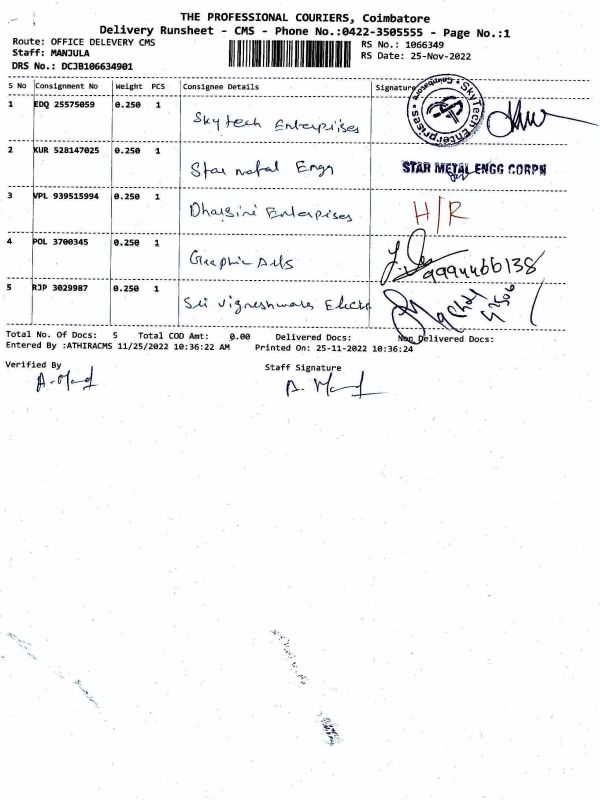 THE PROFESSIONAL COURIERS, Coimbatore
Delivery Runsheet - CMS - Phone No.:0422-3505555 - Page No.:1
Route: OFFICE DELEVERY CMS
RS No.: 1066349
Staff: MANJULA
RS Date: 25-Nov-2022
DRS No.: DCJB106634901
S No Consignment No Weight PCS Consignee Details Signature
SkyTech Enterprises * Coimbatore *
1 EDQ 25575059 0.250 1 Skytech Enterpises
2 KUR 528147025 0.250 1 Star metal Engg STAR METAL ENGG CORPN
3 VPL 939515994 0.250 1 Dharsini Enterpises H/R
4 POL 3700345 0.250 1 Graphic Arts 9994466138
5 RJP 3029987 0.250 1 Sri vigneshwara Elect
Total No. Of Docs: 5 Total COD Amt: 0.00 Delivered Docs: Non Delivered Docs:
Entered By :ATHIRACMS 11/25/2022 10:36:22 AM Printed On: 25-11-2022 10:36:24
Verified By
Staff Signature